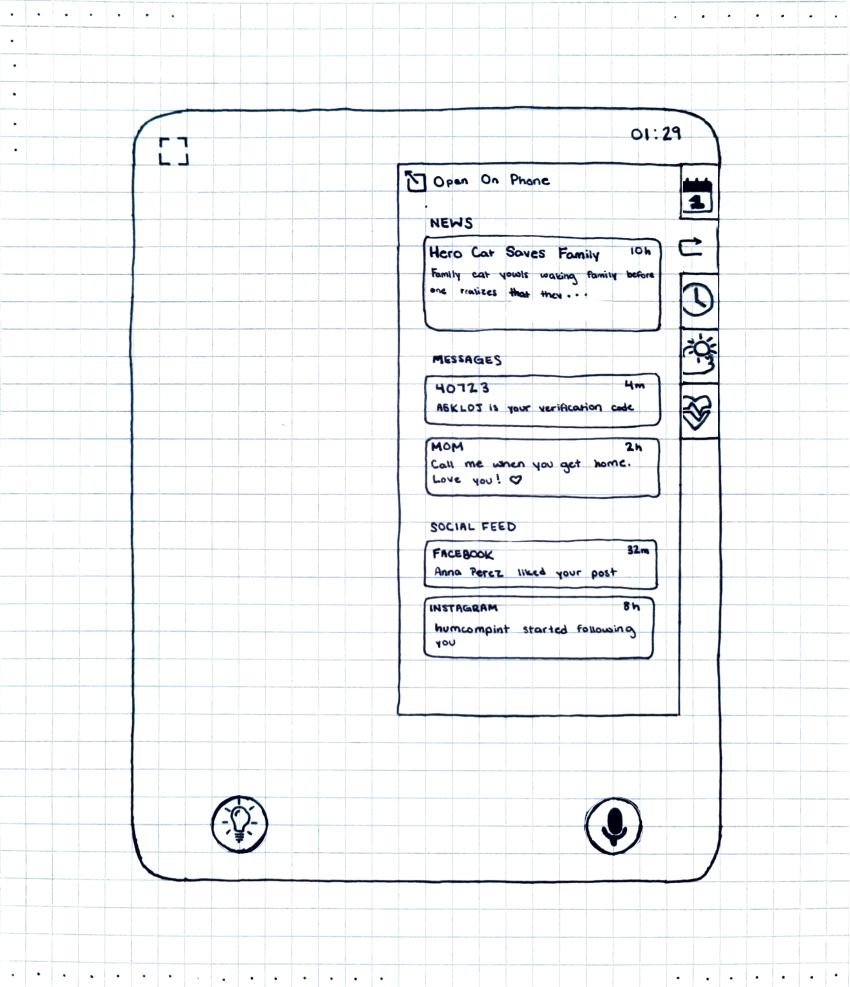 01:29
Open On Phone
1
NEWS
Hero Cat Saves Family 10h
Family cat yowls waking family before
one realizes that they...
MESSAGES
40723 4m
is your verification code
MOM 2h
Call me when you get home.
Love you! ♡
SOCIAL FEED
FACEBOOK 32m
Anna Perez liked your post
INSTAGRAM 8h
humcompint started following
you